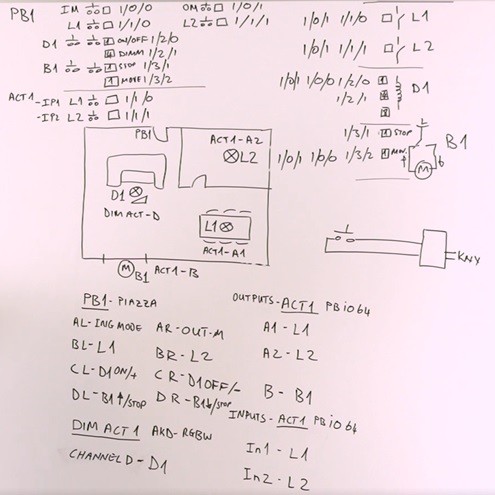 PB1 IM 1/0/0 OM 1/0/1
L1 1/1/0 L2 1/1/1
D1 ON/OFF 1/2/0
DIMM 1/2/1
B1 STOP 1/3/1
MOVE 1/3/2
ACT1 -IP1 L1 1/1/0
-IP2 L2 1/1/1
1/0/1 1/1/0 L1
1/0/1 1/1/1 L2
1/0/1 1/0/0 1/2/0 D1
1/2/1
1/3/1 STOP B1
1/0/1 1/0/0 1/3/2 M
PB1
ACT1-A2
L2
D1
DIM ACT-D
L1
ACT1-A1
M B1 ACT1-B
KNX
PB1-PIAZZA
AL-ING MODE AR-OUT-M
BL-L1 BR-L2
CL-D1ON/+ CR-D1OFF/-
DL-B1↑/STOP DR-B1↓/STOP
DIM ACT1 AKD-RGBW
CHANNEL D-D1
OUTPUTS-ACT1 PBio64
A1-L1
A2-L2
B-B1
INPUTS-ACT1 PBio64
In1-L1
In2-L2